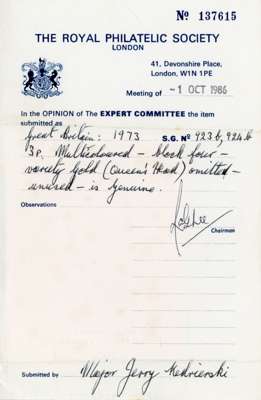 Nº 137615
THE ROYAL PHILATELIC SOCIETY
LONDON
41, Devonshire Place,
London, W1N 1PE
Meeting of -1 OCT 1986
In the OPINION of The EXPERT COMMITTEE the item
submitted as
Great Britain: 1973 S.G. Nº 923b, 924b
3p. Multicoloured - block four -
variety Gold (Queen's Head) omitted -
unused - is genuine.
Observations
Chairman
Submitted by Major Jerry